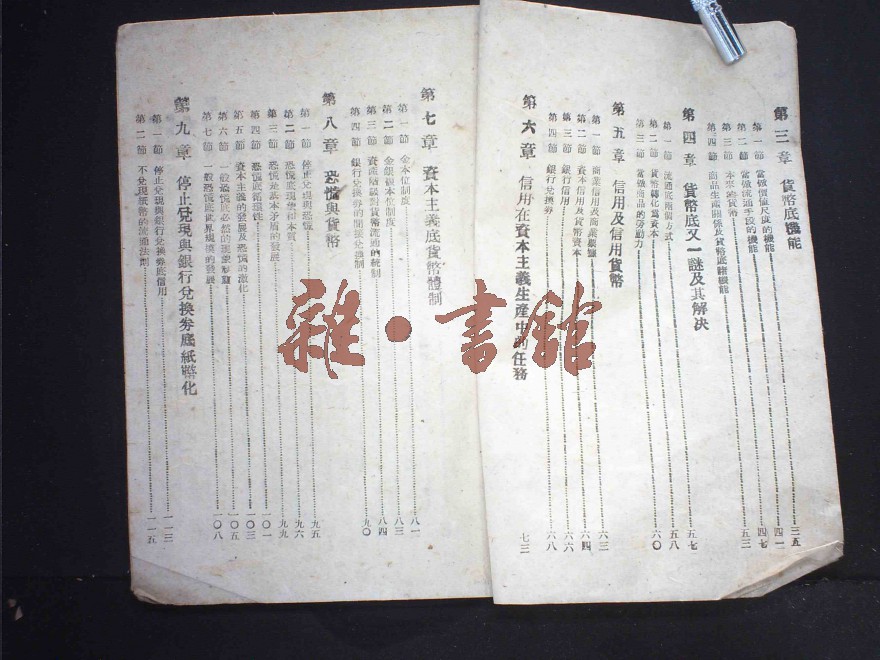 第三章 貨幣底機能
第一節 當做價值尺度的機能 三五
第二節 當做流通手段的機能 四一
第三節 本來的貨幣 四七
第四節 商品生產關係及貨幣底諸機能 五三
第四章 貨幣底又一謎及其解決 五七
第一節 流通底兩個方式 五八
第二節 貨幣轉化為資本 六〇
第三節 當做商品的勞動力
第五章 信用及信用貨幣
第一節 商業信用及商業 六三
第二節 資本信用及貨幣資本 六四
第三節 銀行信用 六六
第四節 銀行兌換券 六八
第六章 信用在資本主義生產中的任務 七三
第七章 資本主義底貨幣體制
第一節 金本位制度 八一
第二節 金銀複本位制度 八三
第三節 資產階級對貨幣流通的統制 八四
第四節 銀行兌換券的 制 九〇
第八章 恐慌與貨幣
第一節 停止兌現與恐慌 九五
第二節 恐慌底現象和本質 九六
第三節 恐慌是基本矛盾的發展 九九
第四節 恐慌底循環性 一〇一
第五節 資本主義的發展及恐慌的激化 一〇三
第六節 一般恐慌 必然的 一〇五
第七節 一般恐慌底世界規模的發展 一〇八
第九章 停止兌現與銀行兌換券底紙幣化
第一節 停止兌現與銀行兌換券底信用 一一三
第二節 不兌現紙幣的流通法則 一一五
雜·書館